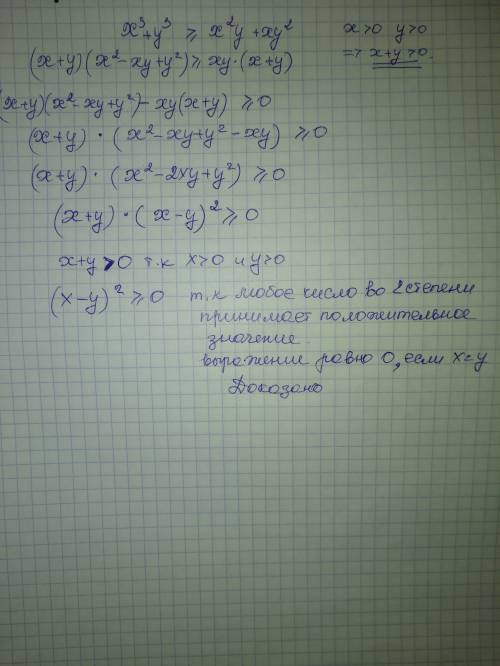 x³+y³ ≥ x²y+xy² x>0 y>0
(x+y)(x²-xy+y²)≥ xy·(x+y) => x+y>0.
(x+y)(x²-xy+y²)-xy(x+y) ≥0
(x+y)·(x²-xy+y²-xy) ≥0
(x+y)·(x²-2xy+y²) ≥0
(x+y)·(x-y)²≥0
x+y>0 т.к x>0 и y>0
(x-y)²≥0 т.к любое число во 2 степени
принимает положительное
значение.
выражение равно 0, если x=y
Доказано